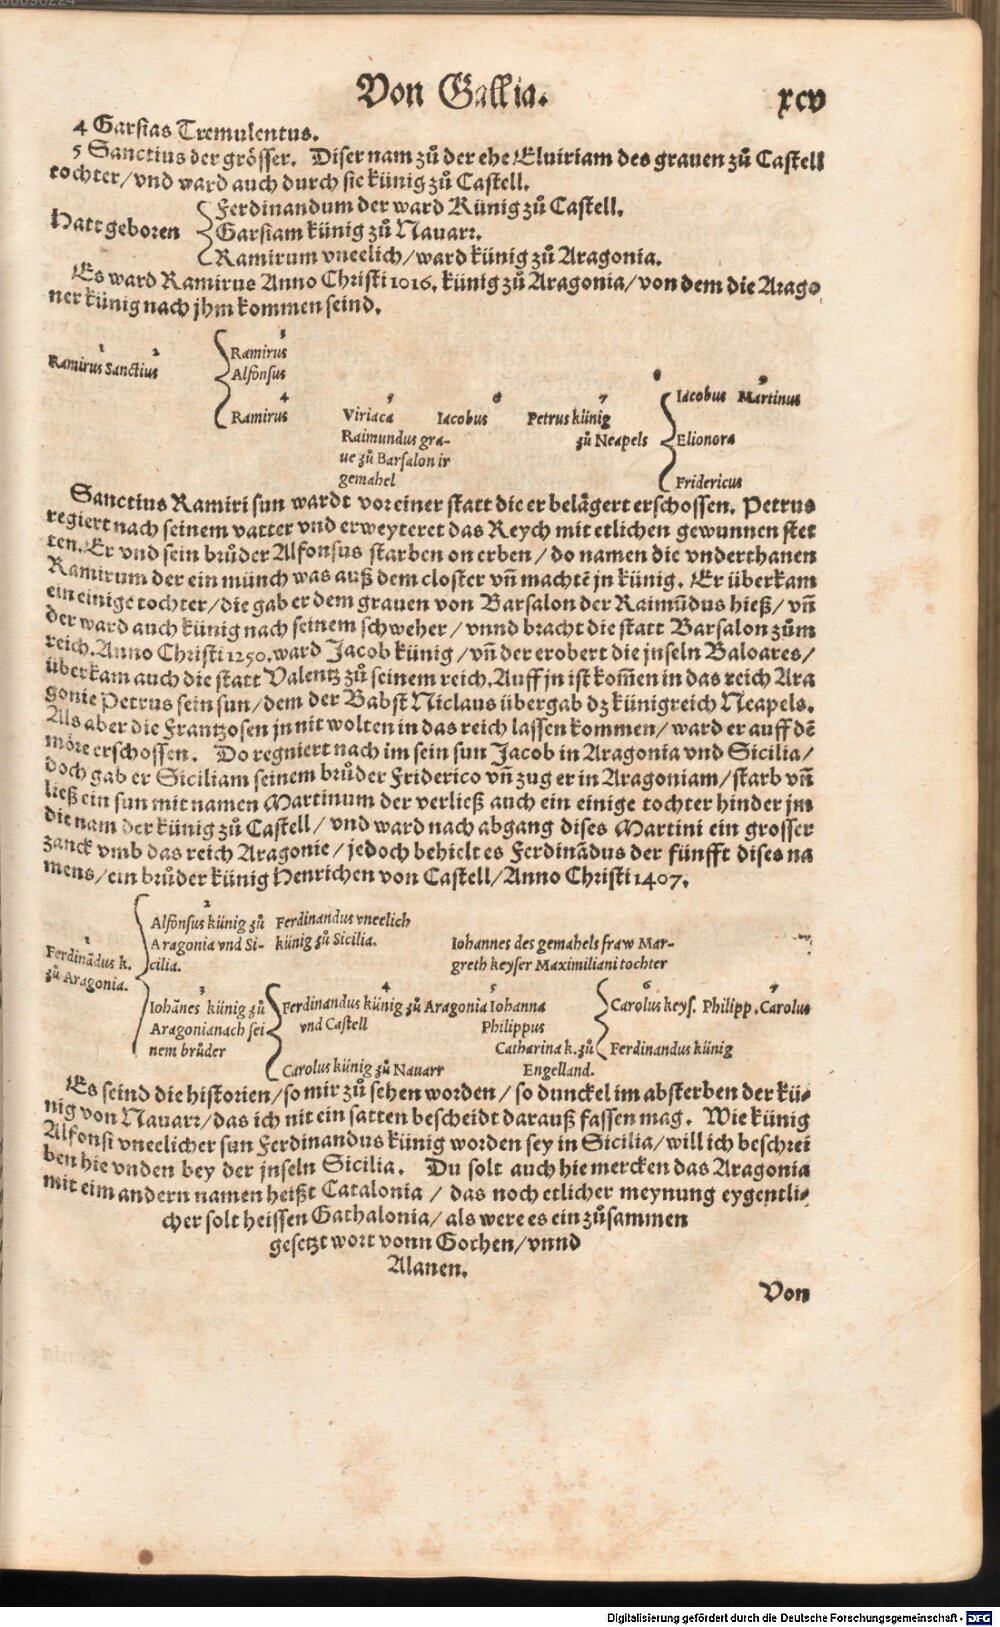 Von Gallia. xcv
4 Garsias Tremulentus.
5 Sanctius der grösser. Diser nam zů der ehe Eluiriam des grauen zů Castell
tochter/vnd ward auch durch sie künig zů Castell.
Ferdinandum der ward Künig zů Castell.
Hatt geboren Garsiam künig zů Nauarr.
Ramirum vneelich/ward künig zů Aragonia.
Es ward Ramirus Anno Christi 1016. künig zů Aragonia/von dem die Arago
ner künig nach jhm kommen seind.
1 2 3
Ramirus Sanctius Ramirus
Alfonsus
4 5 6 7 8 9
Ramirus Viriaca Iacobus Petrus künig Iacobus Martinus
Raimundus gra- zů Neapels Elionora
ue zů Barsalon ir
gemahel Fridericus
Sanctius Ramiri sun wardt vor einer statt die er belägert erschossen. Petrus
regiert nach seinem vatter vnd erweyteret das Reych mit etlichen gewunnen stet
ten. Er vnd sein brůder Alfonsus starben on erben/do namen die vnderthanen
Ramirum der ein münch was auß dem closter vñ machtẽ jn künig. Er überkam
ein einige tochter/die gab er dem grauen von Barsalon der Raimũdus hieß/vñ
der ward auch künig nach seinem schweher/vnnd bracht die statt Barsalon zům
reich. Anno Christi 1250. ward Jacob künig/vñ der erobert die jnseln Baloares/
überkam auch die statt Valentz zů seinem reich. Auff jn ist kom̃en in das reich Ara
gonie Petrus sein sun/dem der Babst Niclaus übergab dz künigreich Neapels.
Als aber die Frantzosen jn nit wolten in das reich lassen kommen/ward er auff dẽ
möre erschossen. Do regniert nach im sein sun Jacob in Aragonia vnd Sicilia/
doch gab er Siciliam seinem brůder Friderico vñ zug er in Aragoniam/starb vñ
ließ ein sun mit namen Martinum der verließ auch ein einige tochter hinder jm
die nam der künig zů Castell/vnd ward nach abgang dises Martini ein grosser
zanck vmb das reich Aragonie/jedoch behielt es Ferdinãdus der fünfft dises na
mens/ein brůder künig Henrichen von Castell/Anno Christi 1407.
2
Alfonsus künig zů Ferdinandus vneelich
1 Aragonia vnd Si- künig zů Sicilia. Iohannes des gemahels fraw Mar-
Ferdinãdus k. cilia. greth keyser Maximiliani tochter
zů Aragonia. 3 4 5 6 7
Iohãnes künig zů Ferdinandus künig zů Aragonia Iohanna Carolus keys. Philipp. Carolus
Aragonia nach sei vnd Castell Philippus
nem brůder Catharina k. zů Ferdinandus künig
Carolus künig zů Nauarr Engelland.
Es seind die historien/so mir zů sehen worden/so dunckel im absterben der kü-
nig von Nauarr/das ich nit ein satten bescheidt darauß fassen mag. Wie künig
Alfonsi vneelicher sun Ferdinandus künig worden sey in Sicilia/will ich beschrei
ben hie vnden bey der jnseln Sicilia. Du solt auch hie mercken das Aragonia
mit eim andern namen heißt Catalonia/das noch etlicher meynung eygentli-
cher solt heissen Gathalonia/als were es ein zůsammen
gesetzt wort vonn Gothen/vnnd
Alanen.
Von
Digitalisierung gefördert durch die Deutsche Forschungsgemeinschaft - DFG